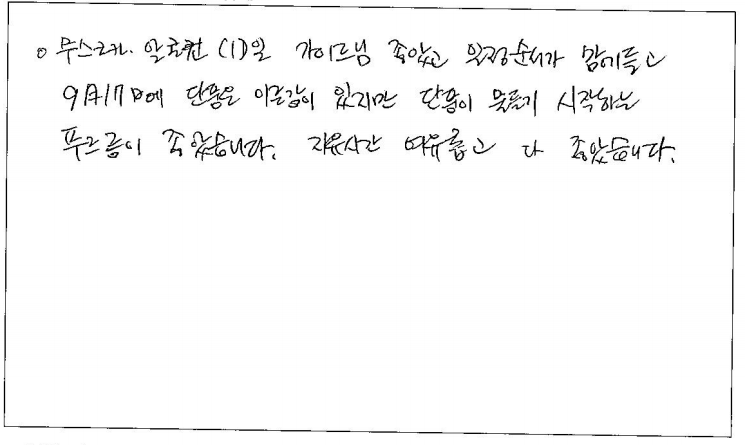 가이드님 좋았고 일정순서가 맘에들고
9月17日에 단풍은 이른감이 있지만 단풍이 물들기 시작하는
푸르름이 좋았습니다. 자유시간 여유롭고 다 좋았습니다.